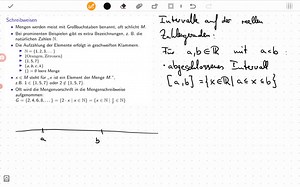 Schreibweisen
• Mengen werden meist mit Großbuchstaben benannt, oft schlicht M.
• Bei prominenten Beispielen gibt es extra Bezeichnungen, z. B. die natürlichen Zahlen ℕ.
• Die Aufzählung der Elemente erfolgt in geschweiften Klammern.
ℕ = {1, 2, 3, ...}
{1, 5, 7}
{} = ∅ leere Menge
• Das Zeichen ∈ steht für „ist ein Element der Menge M",
z.B. 1 ∈ {1, 5, 7} oder 2 ∉ {1, 5, 7}.
• Oft wird die Mengenvorschrift in die Mengenschreibweise
aufgenommen:
G = {2, 4, 6, 8, ...} = {2 · x | x ∈ ℕ}
a b
Intervalle auf der reellen
Zahlengeraden:
Für a,b∈ℝ mit a<b:
• abgeschlossenes Intervall
[a,b] = {x∈ℝ | a≤x≤b}